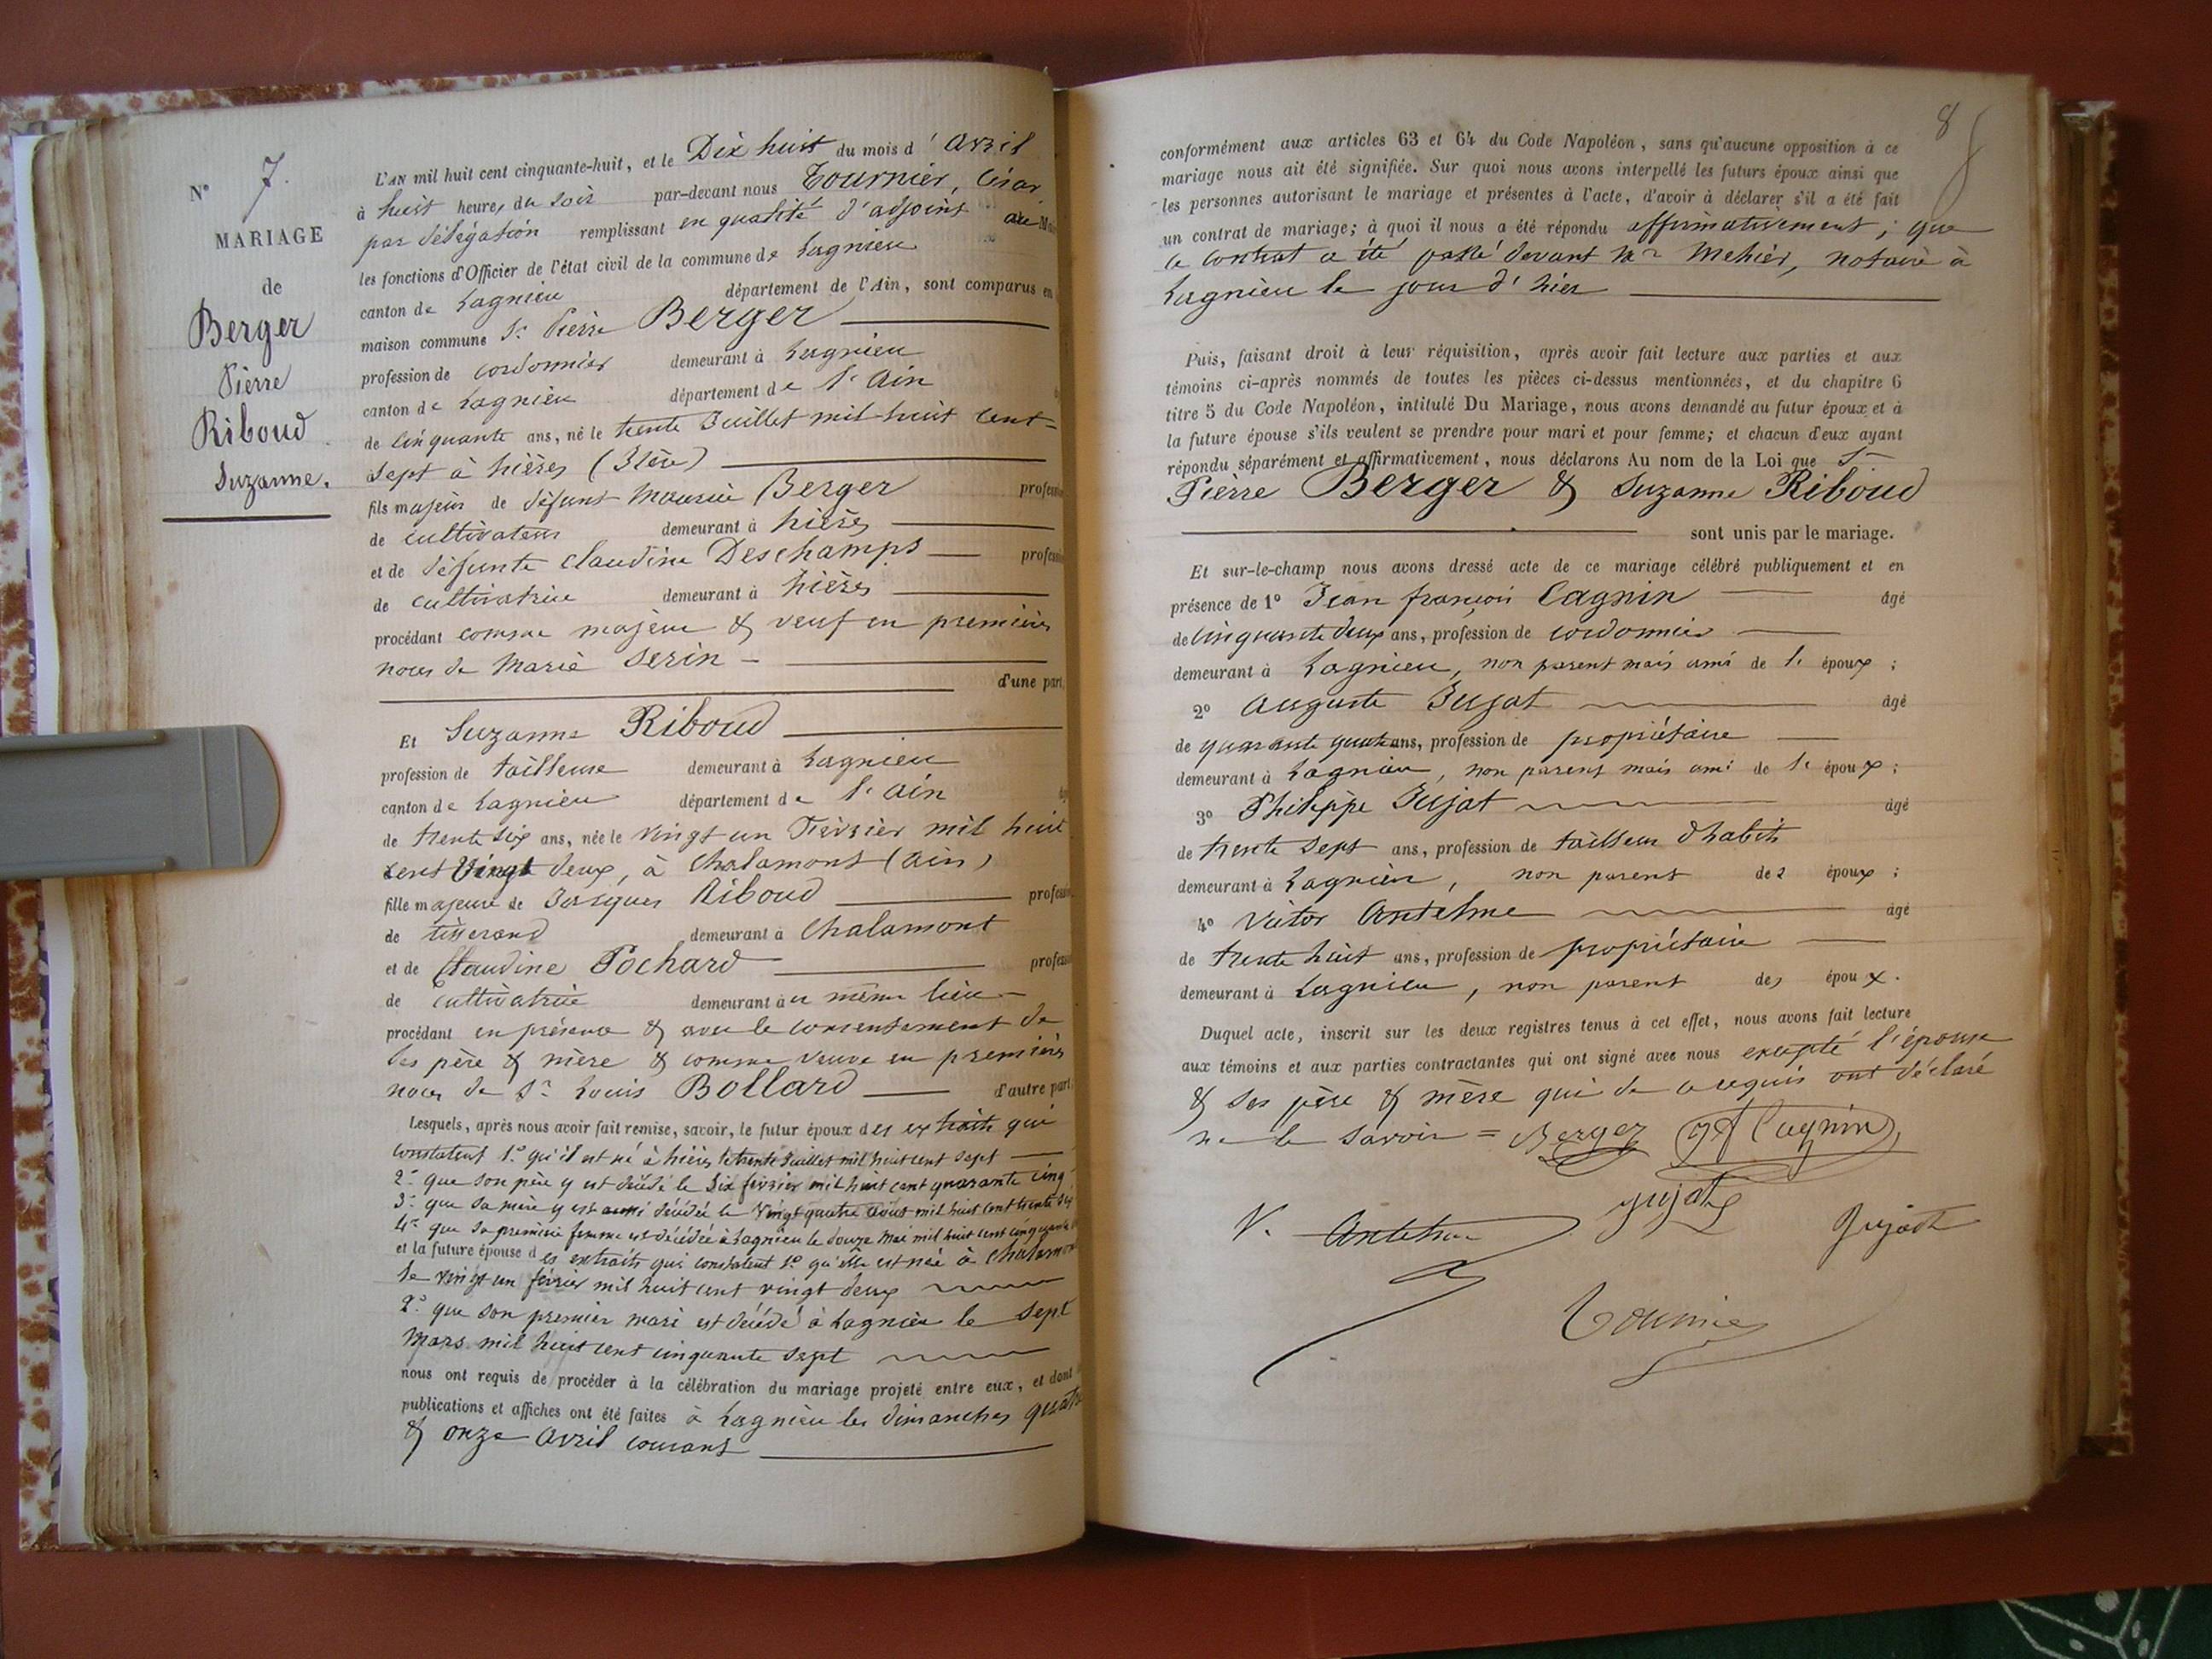 N° 7.
MARIAGE
de
Berger
Pierre
Riboud
Suzanne.
L'AN mil huit cent cinquante-huit, et le Dix huit du mois d'avril
à huit heures du soir par-devant nous Tournier, César
par délégation remplissant en qualité d'adjoint au
les fonctions d'Officier de l'état civil de la commune de Lagnieu
canton de Lagnieu département de l'Ain, sont comparus en
maison commune Sr Pierre Berger
profession de cordonnier demeurant à Lagnieu
canton de Lagnieu département de l'Ain
de cinquante ans, né le trente Juillet mil huit cent-
sept à hières (Isère)
fils majeur de défunt Maurice Berger profession
de cultivateur demeurant à hières
et de défunte Claudine Deschamps profession
de cultivatrice demeurant à hières
procédant comme majeur & veuf en premières
noces de Marie Serin
d'une part,
Et Suzanne Riboud
profession de tailleuse demeurant à Lagnieu
canton de Lagnieu département de l'Ain
de trente six ans, née le vingt un Février mil huit
cent Vingt deux, à Chalamont (Ain)
fille majeure de Jacques Riboud profession
de tisserand demeurant à Chalamont
et de Claudine Pochard profession
de cultivatrice demeurant au même lieu
procédant en présence & avec le consentement de
ses père & mère & comme veuve en premières
noces de Sr Louis Bollard d'autre part.
Lesquels, après nous avoir fait remise, savoir, le futur époux des extraits qui
constatent 1.° qu'il est né à hières le trente Juillet mil huit cent sept
2.° que son père y est décédé le Six février mil huit cent quarante cinq
3.° que sa mère y est aussi décédée le Vingt quatre août mil huit cent trente six
4.° que sa première femme est décédée à Lagnieu le douze mai mil huit cent cinquante
et la future épouse des extraits qui constatent 1.° qu'elle est née à Chalamont
le vingt un février mil huit cent vingt deux
2.° que son premier mari est décédé à Lagnieu le sept
Mars mil huit cent cinquante sept
nous ont requis de procéder à la célébration du mariage projeté entre eux, et dont
publications et affiches ont été faites à Lagnieu les dimanches quatre
& onze avril courant
8
conformément aux articles 63 et 64 du Code Napoléon, sans qu'aucune opposition à ce
mariage nous ait été signifiée. Sur quoi nous avons interpellé les futurs époux ainsi que
les personnes autorisant le mariage et présentes à l'acte, d'avoir à déclarer s'il a été fait
un contrat de mariage; à quoi il nous a été répondu affirmativement; que
ce contrat a été passé devant Mr Mehier, notaire à
Lagnieu le jour d'hier
Puis, faisant droit à leur réquisition, après avoir fait lecture aux parties et aux
témoins ci-après nommés de toutes les pièces ci-dessus mentionnées, et du chapitre 6
titre 5 du Code Napoléon, intitulé Du Mariage, nous avons demandé au futur époux et à
la future épouse s'ils veulent se prendre pour mari et pour femme; et chacun d'eux ayant
répondu séparément et affirmativement, nous déclarons Au nom de la Loi que Sr
Pierre Berger & Suzanne Riboud
sont unis par le mariage.
Et sur-le-champ nous avons dressé acte de ce mariage célébré publiquement et en
présence de 1° Jean françois Cagnin âgé
de cinquante deux ans, profession de cordonnier
demeurant à Lagnieu, non parent mais ami de l' époux;
2° Auguste Jujat âgé
de quarante quatre ans, profession de propriétaire
demeurant à Lagnieu, non parent mais ami de l' époux;
3° Philippe Jujat âgé
de trente sept ans, profession de tailleur d'habits
demeurant à Lagnieu, non parent des époux;
4° Victor Anthelme âgé
de trente huit ans, profession de propriétaire
demeurant à Lagnieu, non parent des époux.
Duquel acte, inscrit sur les deux registres tenus à cet effet, nous avons fait lecture
aux témoins et aux parties contractantes qui ont signé avec nous excepté l'épouse
& ses père & mère qui de ce requis ont déclaré
ne le savoir = Berger Cagnin
jujat
V. Anthelme Jujat
Tournier